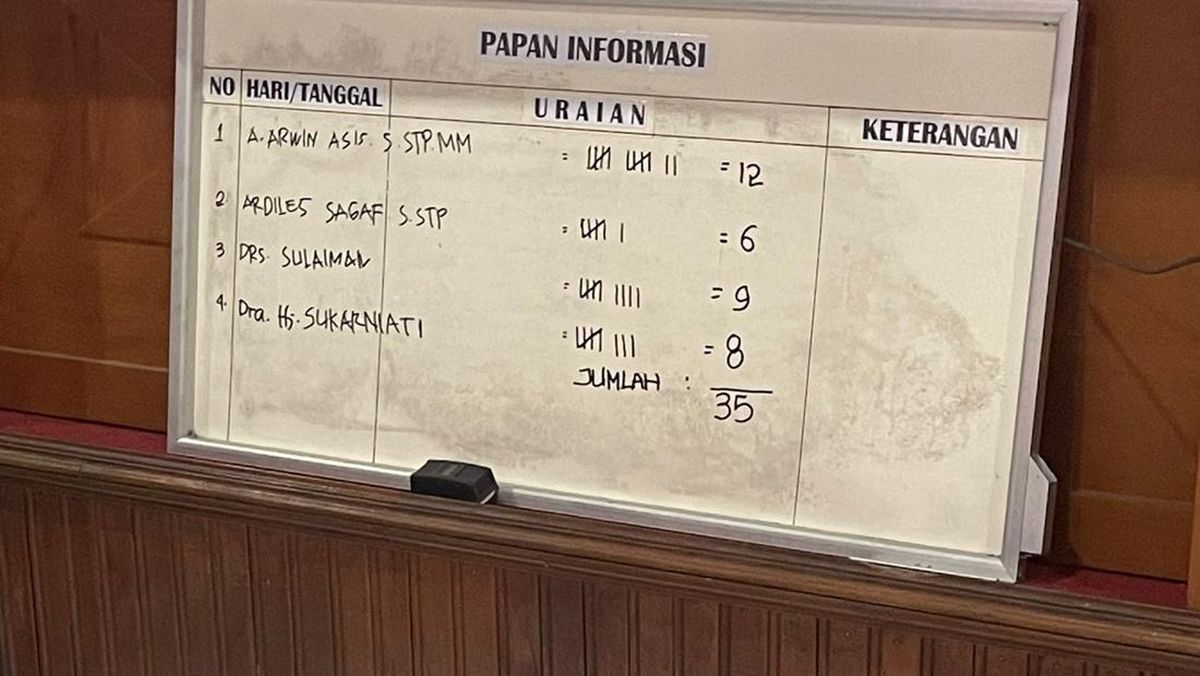 PAPAN INFORMASI
NO HARI/TANGGAL URAIAN KETERANGAN
1 A. ARWIN ASIS. S. STP. MM = 12
2 ARDILES SAGAF S. STP = 6
3 DRS. SULAIMAN = 9
4. Dra. Hj. SUKARNIATI = 8
JUMLAH : 35